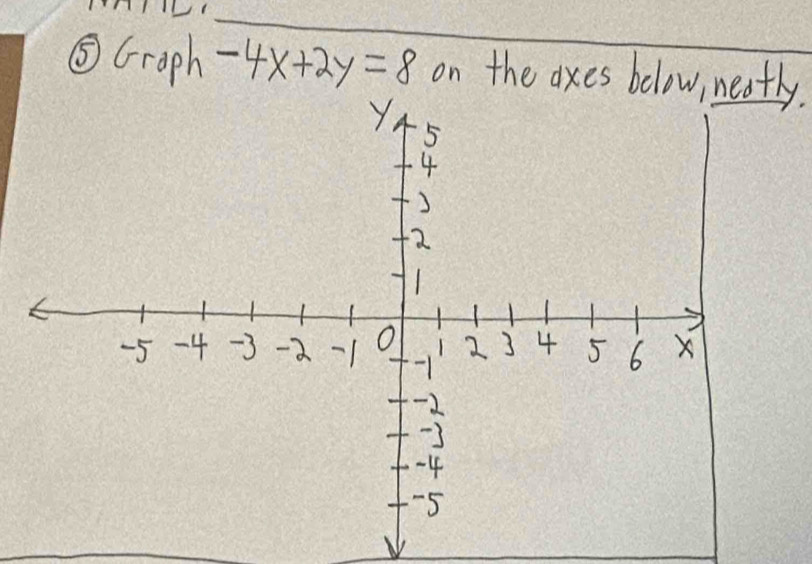 ⑤ Graph -4x+2y=8 on the axes below, neatly.
y
5
4
3
2
1
-5 -4 -3 -2 -1 0 1 2 3 4 5 6 x
-1
-2
-3
-4
-5